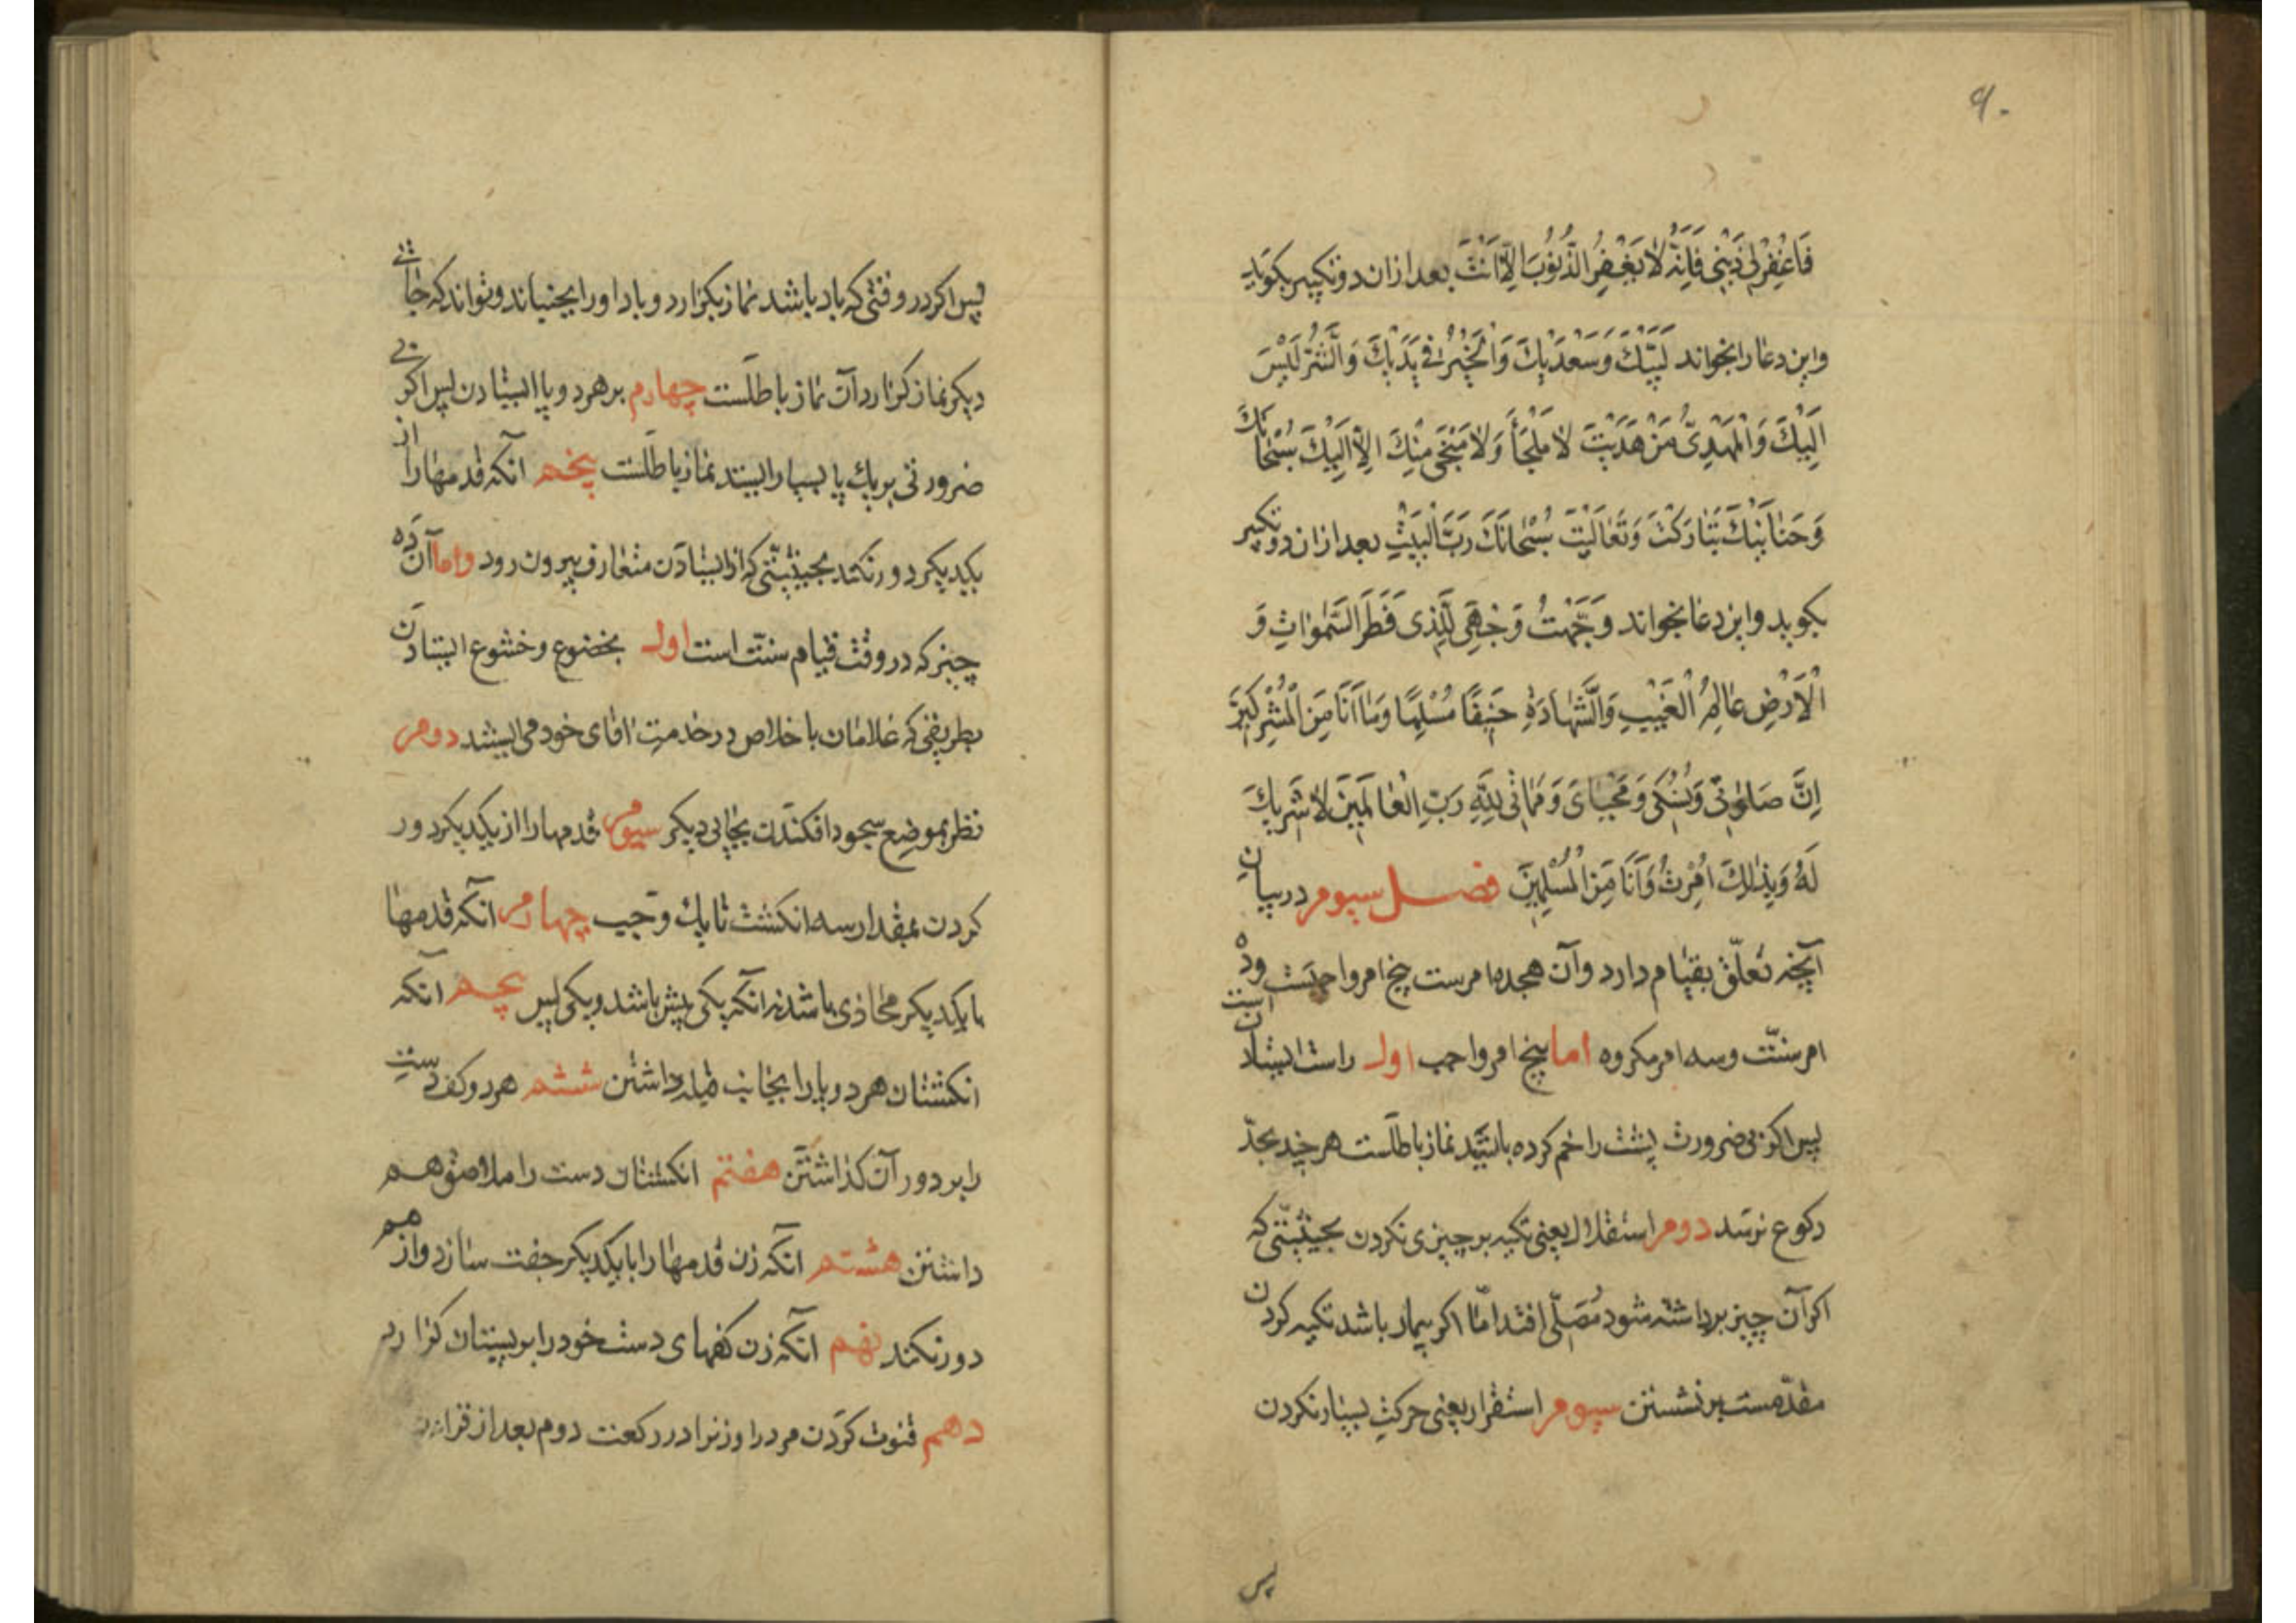 ۹۰
فَاغْفِرْ لی ذَنْبی فَاِنَّهُ لا یَغْفِرُ الذُّنُوبَ اِلّا اَنْتَ بعد ازان دو تکبیر بکوید
واین دعا را بخواند لَبَّیْكَ وَسَعْدَیْكَ وَالْخَیْرُ فی یَدَیْكَ وَالشَّرُّ لَیْسَ
اِلَیْكَ وَالْمَهْدِیُّ مَنْ هَدَیْتَ لا مَلْجَأَ وَلا مَنْجی مِنْكَ اِلّا اِلَیْكَ سُبْحانَكَ
وَحَنانَیْكَ تَبارَکْتَ وَتَعالَیْتَ سُبْحانَكَ رَبَّ الْبَیْتِ بعد ازان دو تکبیر
بکوید واین دعا بخواند وَجَّهْتُ وَجْهِیَ لِلَّذی فَطَرَ السَّمواتِ وَ
الْاَرْضِ عالِمِ الْغَیْبِ وَالشَّهادَةِ حَنیفًا مُسْلِمًا وَما اَنَا مِنَ الْمُشْرِکینَ
اِنَّ صَلوتی وَنُسُکی وَمَحْیایَ وَمَماتی لِلّهِ رَبِّ الْعالَمینَ لا شَریكَ
لَهُ وَبِذلِكَ اُمِرْتُ وَاَنَا مِنَ الْمُسْلِمینَ فصل سیوم در بیان
آنچه تعلّق بقیام دارد وآن هجده امرست پنج امر واجبست وده
امر سنّت است وسه امر مکروه اما پنج امر واجب اول راست ایستادن
پس اکر بی ضرورت پشت را خم کرده بایستد نماز باطلست هر چند بحدّ
رکوع نرسد دوم استقلال یعنی تکیه بر چیزی نکردن بحیثیّتی که
اکر آن چیز برداشته شود مُصَلّی افتد امّا اکر بیمار باشد تکیه کردن
مقدّمست بر نشستن سیوم استقرار یعنی حرکتِ بسیار نکردن
پس
پس اکر در وقتی که باد باشد نماز بکزارد وباد اورا بجنباند وتواند که جائی
دیکر نماز کزارد آن نماز باطلست چهارم بر هر دو پا ایستادن پس اکر بی
ضرورتی بر یك پا بسیار ایستد نماز باطلست پنجم آنکه قدمها را از
یکدیکر دور نکند بحیثیّتی که از ایستادن متعارف بیرون رود واما آن ده
چیز که در وقت قیام سنّت است اول بخضوع وخشوع ایستادن
بطریقی که غلامان باخلاص در خدمتِ آقای خود می ایستند دوم
نظر بموضع سجود افکندن بجایی دیکر سیوم قدمها را از یکدیکر دور
کردن بمقدار سه انکشت تا یك وجب چهارم آنکه قدمها
با یکدیکر محاذی باشد نه آنکه یکی پیش باشد ویکی پس پنجم آنکه
انکشتان هر دو پا را بجانب قبله داشتن ششم هر دو کف دست
را بر دو ران کذاشتن هفتم انکشتان دست را ملاصق هم
داشتن هشتم آنکه زن قدمها را با یکدیکر جفت سازد واز هم
دور نکند نهم آنکه زن کفهای دست خود را بر پستان کزارد
دهم قنوت کردن مرد را وزنرا در رکعت دوم بعد از قراءت